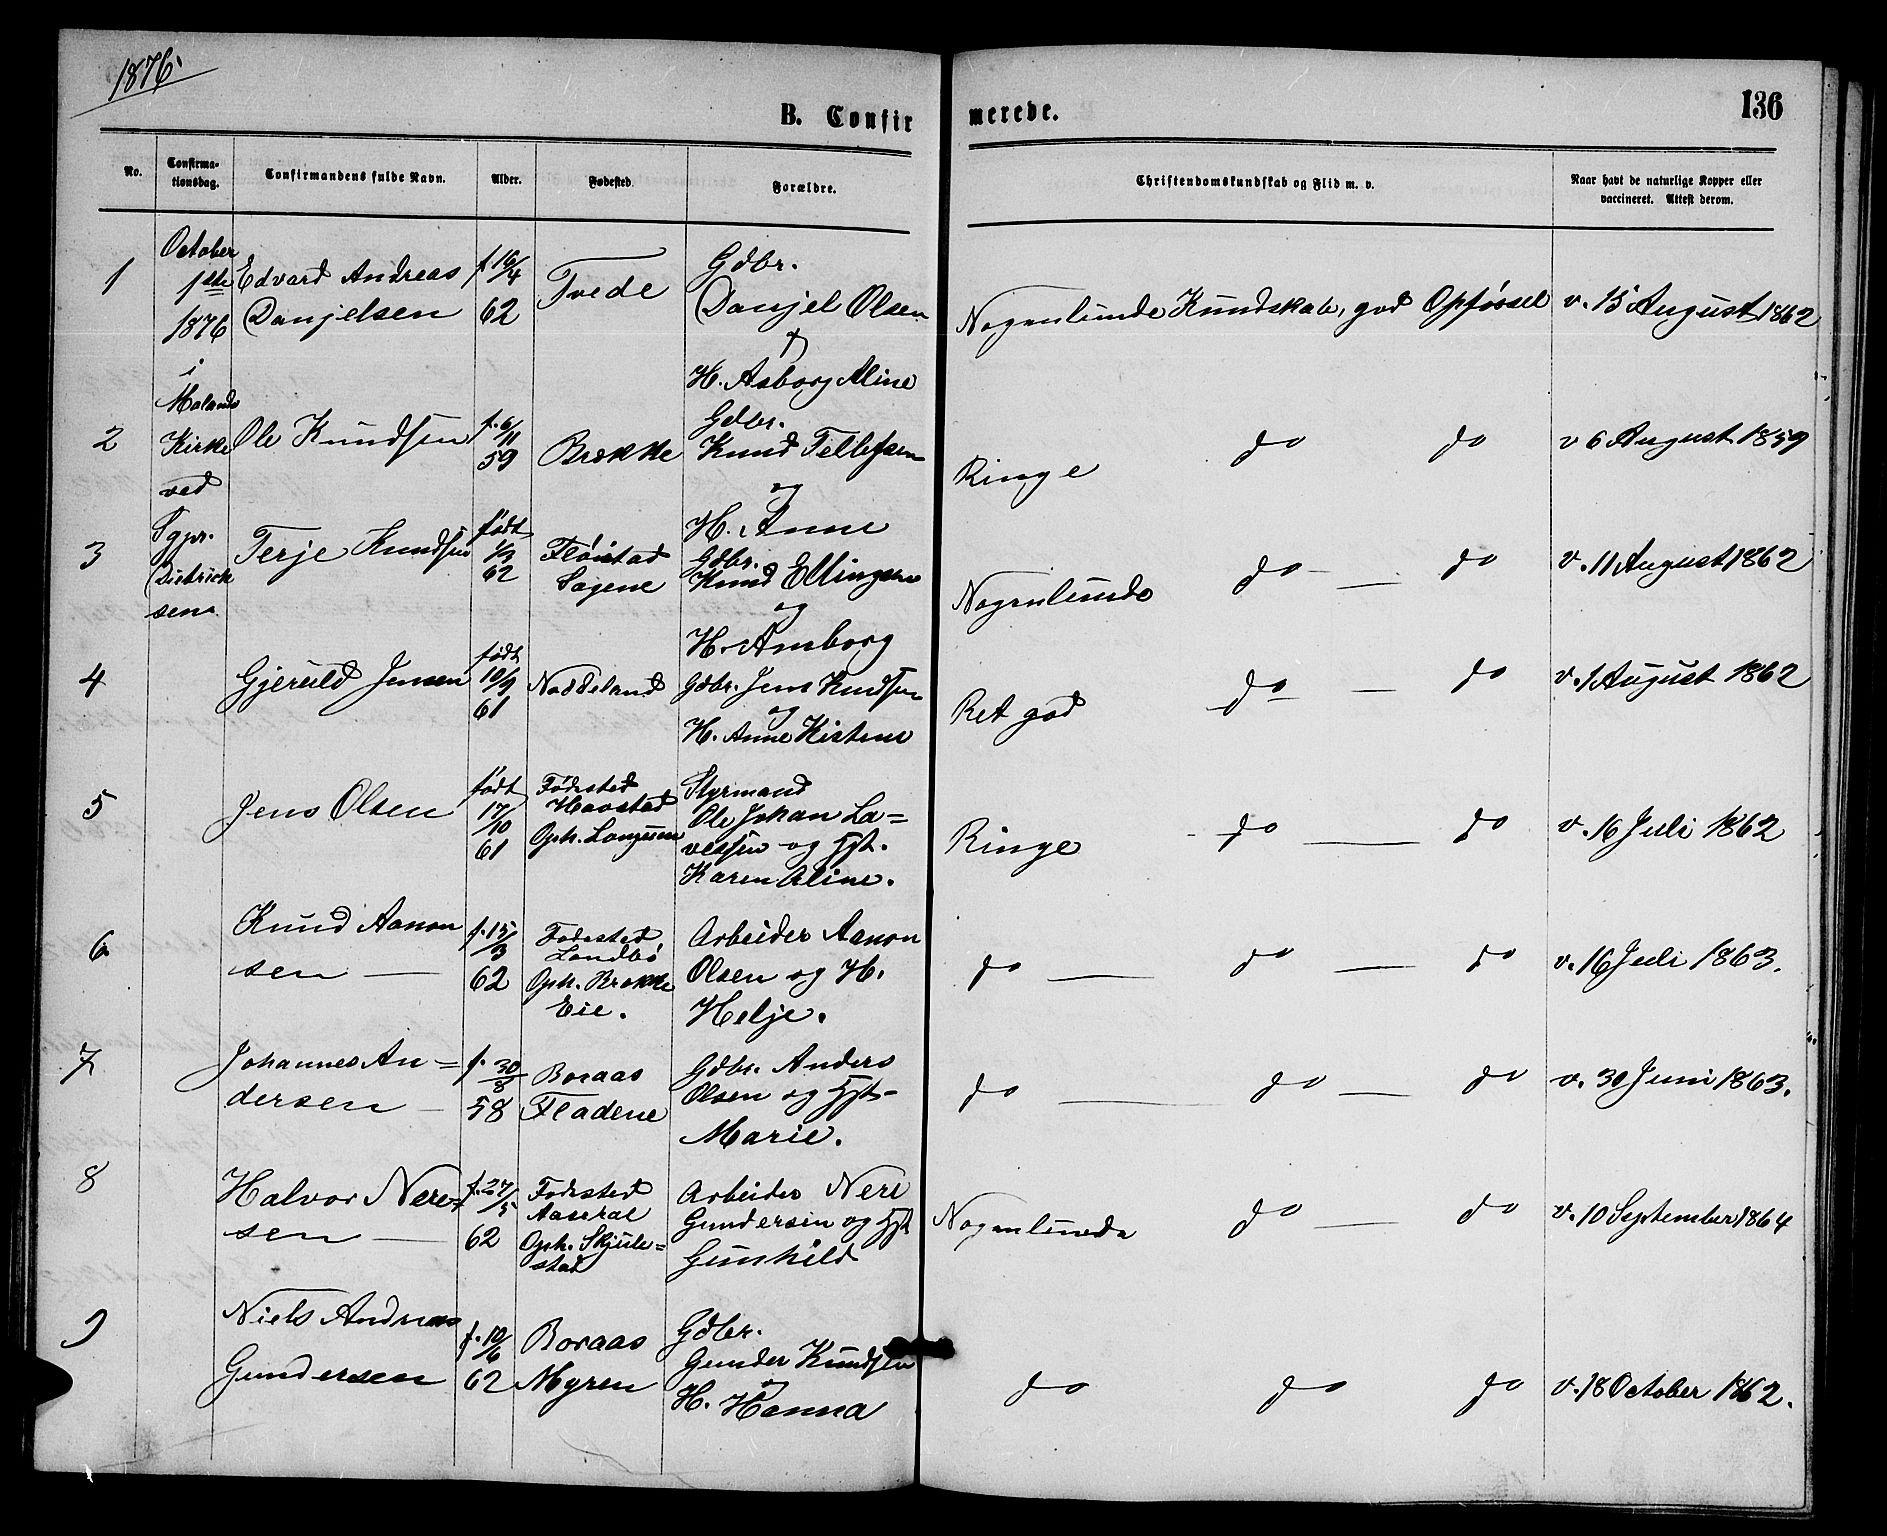 1876.
B. Confir
merede.
136
No.
Confirma-
tionsdag.
Confirmandens fulde Navn.
Alder.
Fødested.
Forældre.
Christendomskundskab og Flid m. v.
Naar havt de naturlige Kopper eller
vaccineret. Attest derom.
October
1ste
1876
i
Molands
Kirke
ved
Sgpr.
Dietrich
sen.
1
Edvard Andreas
Danjelsen
f. 16/4
62
Tvede
Gdbr.
Danjel Olsen
H. Asborg Aline
Nogenlunde Kundskab, god Opførsel
v. 15 August 1862
2
Ole Knudsen
f. 6/11
59
Brekke
Gdbr.
Knud Tellefsen
og
H. Anne
Ringe do do
v 6 August 1859
3
Terje Knudsen
født
62
Fløistad
Sagene
Gdbr.
Knud Ellingsen
og
H. Amborg
Nogenlunde do — do
v. 11 August 1862
4
Gjeruld Jensen
født
10/9
61
Noddeland
Gdbr. Jens Knudsen
og
H. Anne Kistene
Ret god do — do
v. 1 August 1862
5
Jens Olsen
født
17/10
61
Fødested
Havstad
Oph. Longum
Styrmand
Ole Johan La=
vessen og Hst.
Karen Aline.
Ringe do — do
v. 16 Juli 1862
6
Knud Aanon
sen —
f. 15/3
62
Fødested
Landbø
Oph. Brekke
Eie.
Arbeider Aanon
Olsen og H.
Helje.
do — do — do
v. 16 Juli 1863.
7
Johannes An=
dersen —
f. 30/8
58
Boraas
Fladene
Gdbr. Anders
Olsen og Hst
Marie.
do — do — do
v. 30 Juni 1863.
8
Halvor Nere=
sen —
f. 27/5
62
Fødested
Aaseral
Oph. Skjule=
stad
Arbeider Neri
Gundersen og Hst
Gunhild
Nogenlunde do — do
v. 10 September 1864
9
Niels Andreas
Gundersen
f. 10/6
62
Boraas
Myren
Gdbr.
Gunder Knudsen
og
H. Hanna
do do do
v. 18 October 1862.